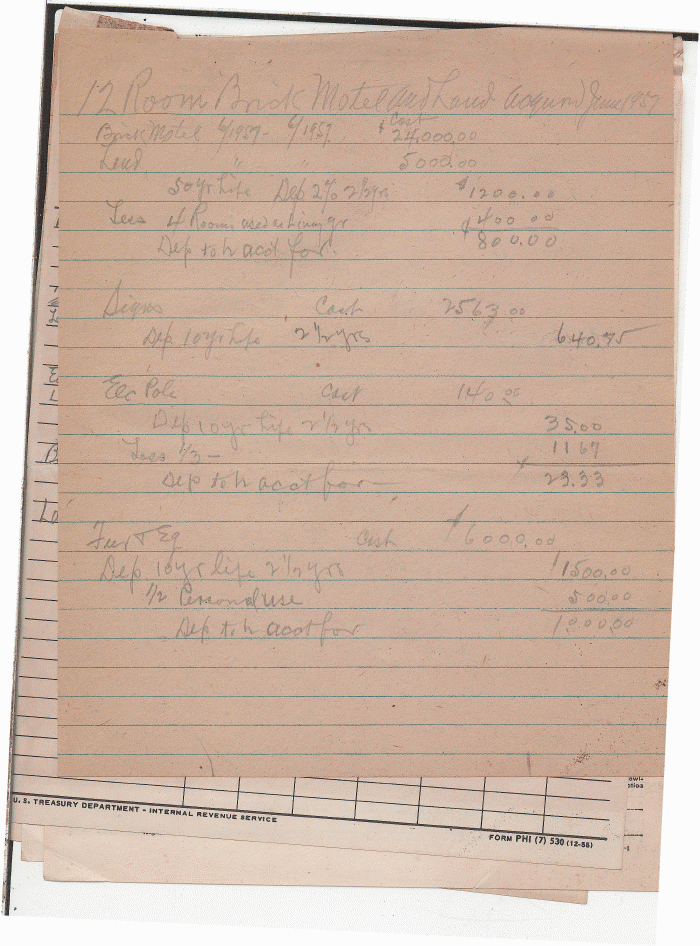 12 Room Brick Motel and Land acquired June 1957
Cost
Brick Motel 6/1957 - 6/1957 $ 24,000.00
Land " " 5000.00
50 yr Life Dep 2% 2½ yrs $1200.00
Less 4 Rooms used as living qr $400 00
Dep to h acct for. 800.00
Signs Cost 2563.00
Dep. 10 yr Life 2½ yrs 640.75
Elec Pole Cost 140.00
Dep 10 yr Life 2½ yrs 35.00
Less 1/3 - 11 67
Dep to h acct for - 23.33
Fur & Eq Cost $6000.00
Dep 10 yr life 2½ yrs 1500.00
1/2 Personal use 500.00
Dep to h acct for 1000.00
U. S. TREASURY DEPARTMENT - INTERNAL REVENUE SERVICE
FORM PHI (7) 530 (12-55)